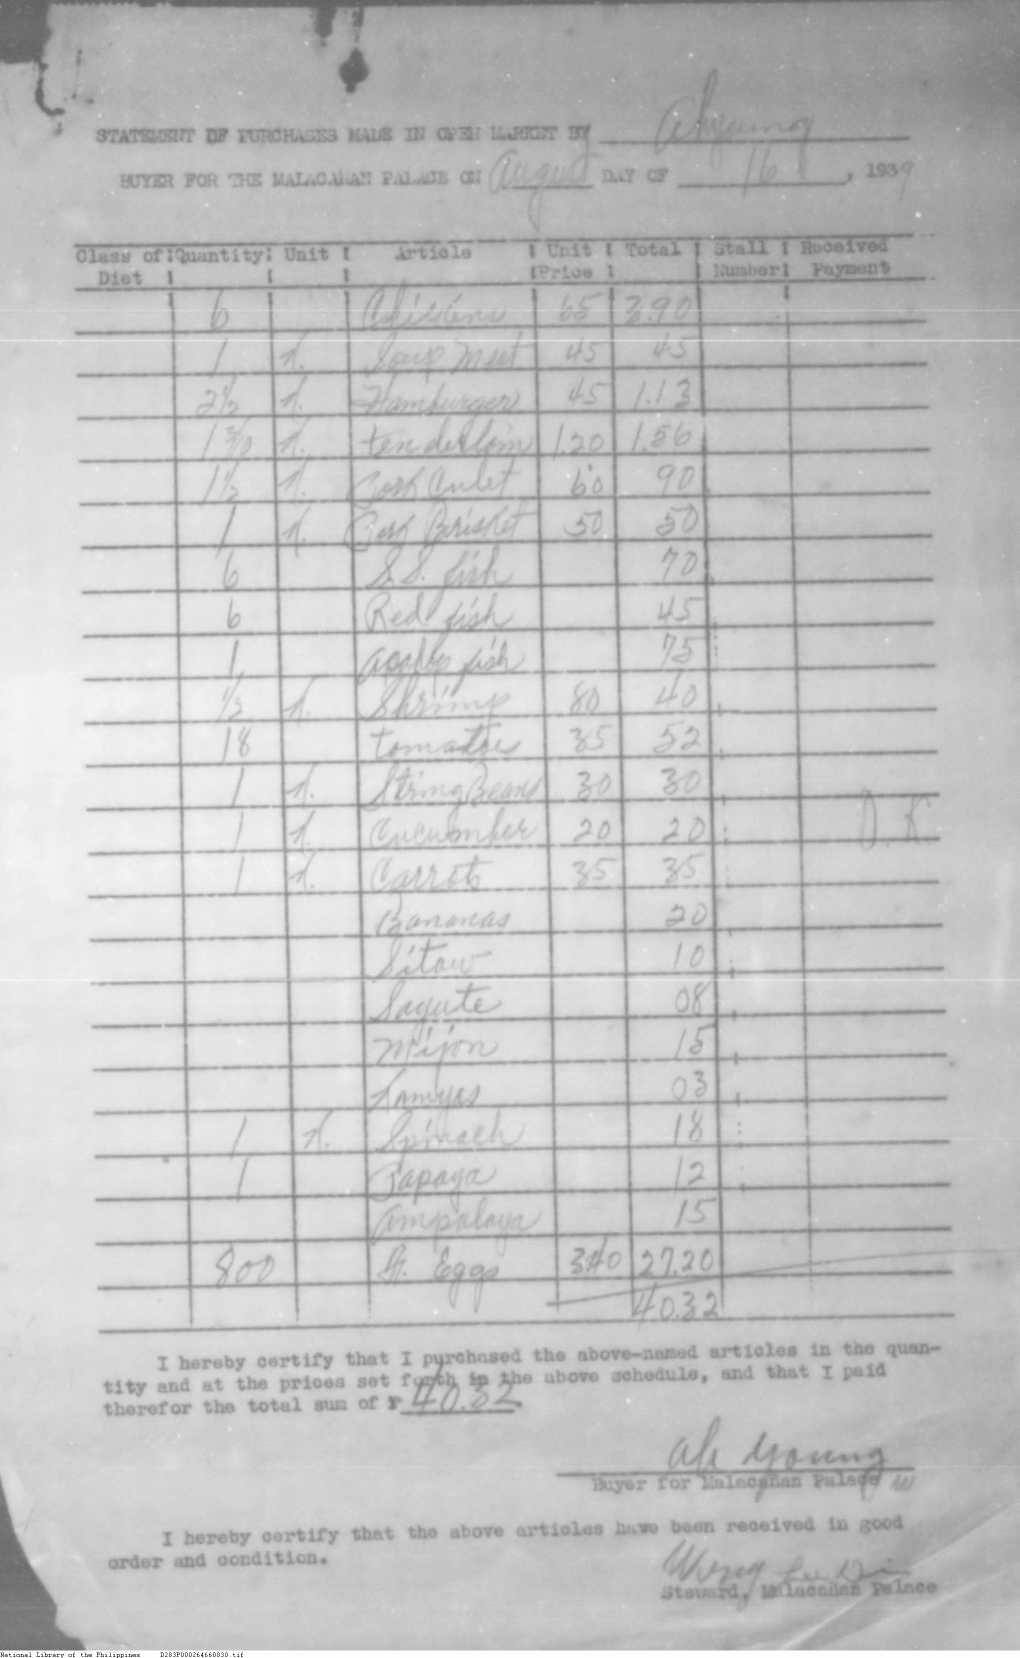 STATEMENT OF PURCHASES MADE IN OPEN MARKET BY Ahyoung
BUYER FOR THE MALACAÑAN PALACE ON August DAY OF 16, 1939
Class of Diet Quantity Unit Article Unit Price Total Stall Number Received Payment
6 65 3.90
1 K. Soup Meat 45 45
2½ K. Hamburger 45 1.13
1 3/10 K. tenderloin 1.20 1.56
1½ K. Pork Cutlet 60 90
1 K. Pork Brisket 50 50
6 S.S. fish 70
6 Red fish 45
1 fish 75
½ K. Shrimp 80 40
18 tomatoes 35 52
1 K. String Beans 30 30
1 K. Cucumber 20 20 O.K
1 K. Carrots 35 35
Bananas 20
Sitaw 10
Sayute 08
Mijon 15
Kamyas 03
1 K. Spinach 18
1 Papaya 12
Ampalaya 15
800 Eggs 3.40 27.20
40.32
I hereby certify that I purchased the above-named articles in the quan-
tity and at the prices set forth in the above schedule, and that I paid
therefor the total sum of ₱ 40.32.
Ah Young
Buyer for Malacañan Palace
I hereby certify that the above articles have been received in good
order and condition.
Steward, Malacañan Palace
National Library of the Philippines D283P000264660830.tif